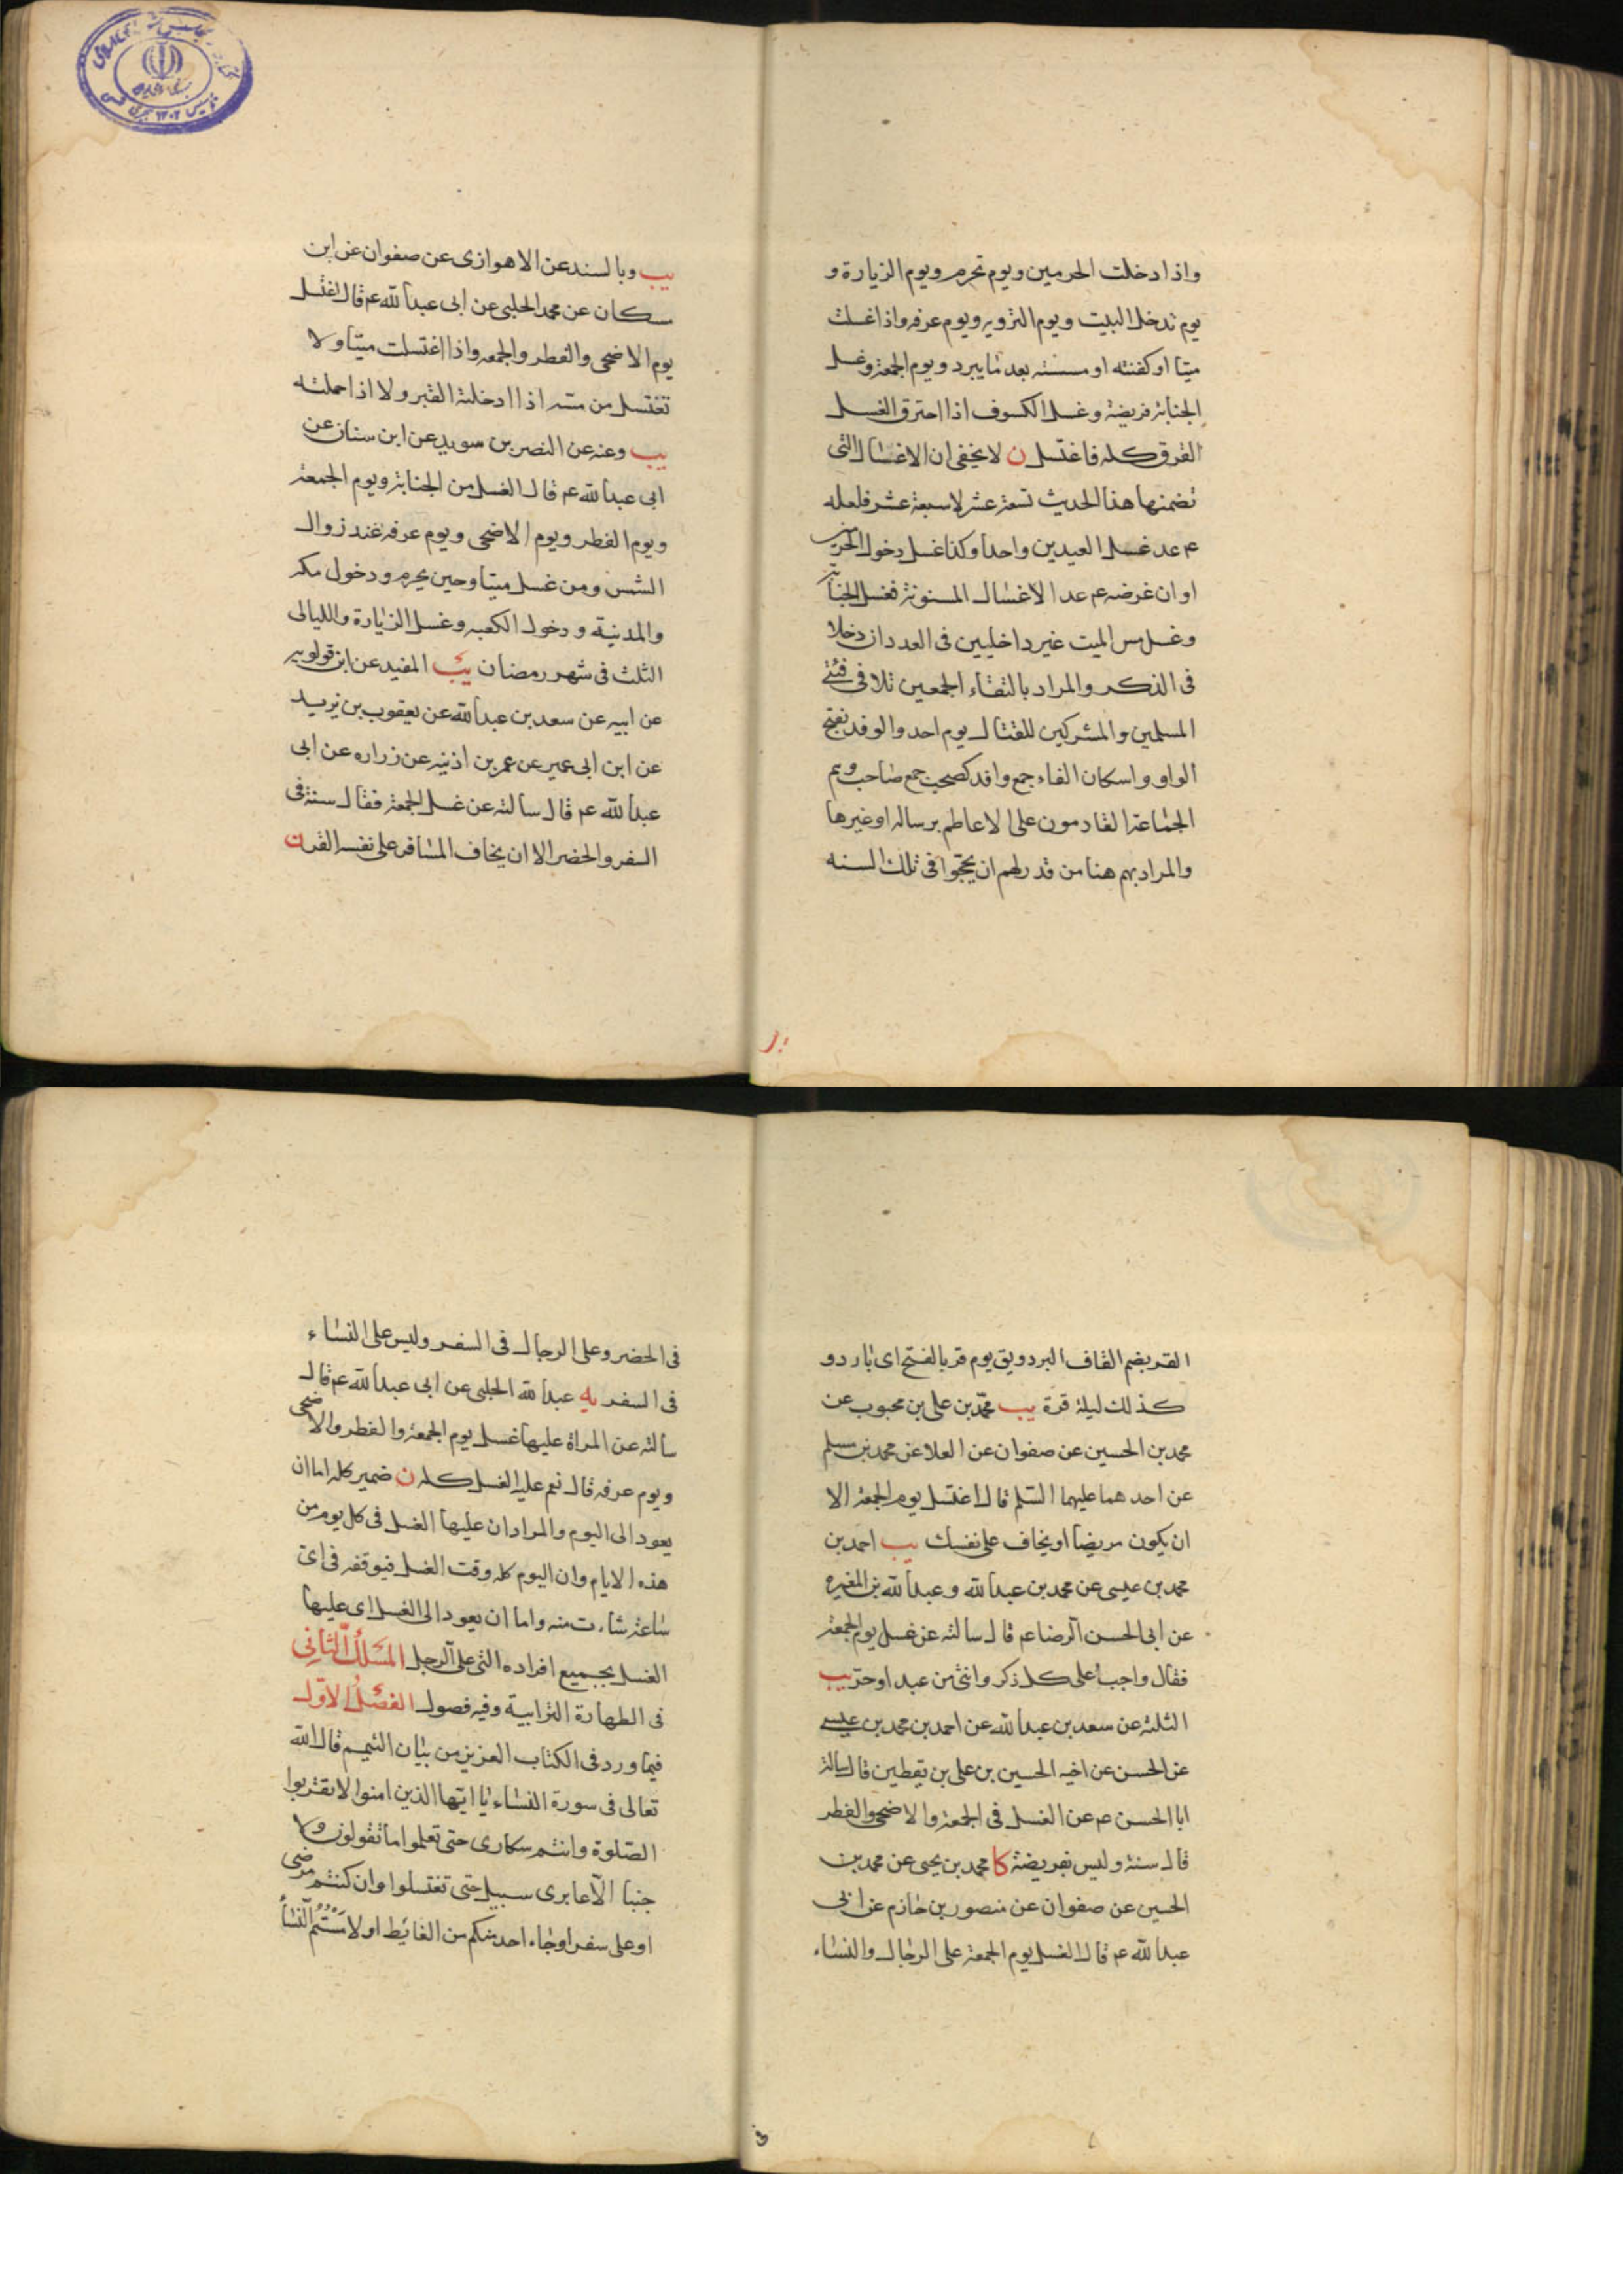 واذا دخلت الحرمين ويوم تحرم ويوم الزيارة و
يوم تدخل البيت ويوم الترويه ويوم عرفه واذا غسلت
ميتا او كفنته او مسسته بعد ما يبرد ويوم الجمعة وغسل
الجنابة فريضة وغسل الكسوف اذا احترق الغسل
القرق كله فاغتسل ن لا يخفى ان الاغسال التى
تضمنها هذا الحديث تسعة عشر لا سبعة عشر فلعله
ع عد غسل العيدين واحدا وكذا غسل دخول الحرمين
او ان غرضه ع عد الاغسال المسنونة فغسل الجنابة
وغسل مس الميت غير داخليين فى العدد ان دخلا
فى الذكر والمراد بالتقاء الجمعين تلاقى فئتى
المسلمين والمشركين للقتال يوم احد والوفد بفتح
الواو واسكان الفاء جمع وافد كصحب جمع صاحب وهم
الجماعة القادمون على الاعاظم برسالة او غيرها
والمراد بهم هنا من قدر لهم ان يحجوا فى تلك السنه
يب وبالسند عن الاهوازى عن صفوان عن ابن
مسكان عن محمد الحلبى عن ابى عبدالله ع قال اغتسل
يوم الاضحى والفطر والجمعه واذا اغتسلت ميتا ولا
تغتسل من مسه اذا ادخلته القبر ولا اذا حملته
يب وعنه عن النضر بن سويد عن ابن سنان عن
ابى عبدالله ع قال الغسل من الجنابة ويوم الجمعة
ويوم الفطر ويوم الاضحى ويوم عرفه عند زوال
الشمس ومن غسل ميتا وحين يحرم ودخول مكه
والمدنية ودخول الكعبه وغسل الزيارة والليالى
الثلث فى شهر رمضان يب المفيد عن ابن قولويه
عن ابيه عن سعد بن عبدالله عن يعقوب بن يزيد
عن ابن ابى عمير عن عمر بن اذنيه عن زراره عن ابى
عبدالله ع قال سالته عن غسل الجمعة فقال سنة فى
السفر والحضر الا ان يخاف المسافر على نفسه القر ن
القر بضم القاف البرد ويق يوم قر بالفتح اى بارد و
كذلك ليلة قرة يب محمد بن على بن محبوب عن
محمد بن الحسين عن صفوان عن العلا عن محمد بن مسلم
عن احدهما عليهما السلم قال اغتسل يوم الجمعة الا
ان يكون مريضا او يخاف على نفسك يب احمد بن
محمد بن عيسى عن محمد بن عبدالله وعبدالله بن المغيره
عن ابى الحسن الرضا ع قال سالته عن غسل يوم الجمعة
فقال واجب على كل ذكر وانثى من عبد او حر يب
الثلثة عن سعد بن عبدالله عن احمد بن محمد بن عيسى
عن الحسن عن اخيه الحسين بن على بن يقطين قال سالت
ابا الحسن ع عن الغسل فى الجمعة والاضحى والفطر
قال سنة وليس بفريضة كا محمد بن يحيى عن محمد بن
الحسين عن صفوان عن منصور بن حازم عن ابى
عبدالله ع قال الغسل يوم الجمعة على الرجال والنساء
فى الحضر وعلى الرجال فى السفر وليس على النساء
فى السفر يه عبدالله الحلبى عن ابى عبدالله ع قال
سالته عن المراة عليها غسل يوم الجمعة والفطر والاضحى
ويوم عرفه قال نعم عليها الغسل كله ن ضمير كله اما ان
يعود الى اليوم والمراد ان عليها الغسل فى كل يوم من
هذه الايام وان اليوم كله وقت الغسل فيوقفه فى اى
ساعة شاءت منه واما ان يعود الى الغسل اى عليها
الغسل بجميع افراده التى على الرجل المسلك الثانى
فى الطهارة الترابية وفيه فصول الفصل الاول
فيما ورد فى الكتاب العزيز من بيان التيمم قال الله
تعالى فى سورة النساء يا ايها الذين امنوا لا تقربوا
الصلوة وانتم سكارى حتى تعلموا ما تقولون ولا
جنبا الا عابرى سبيل حتى تغتسلوا وان كنتم مرضى
او على سفر او جاء احد منكم من الغايط او لامستم النساء